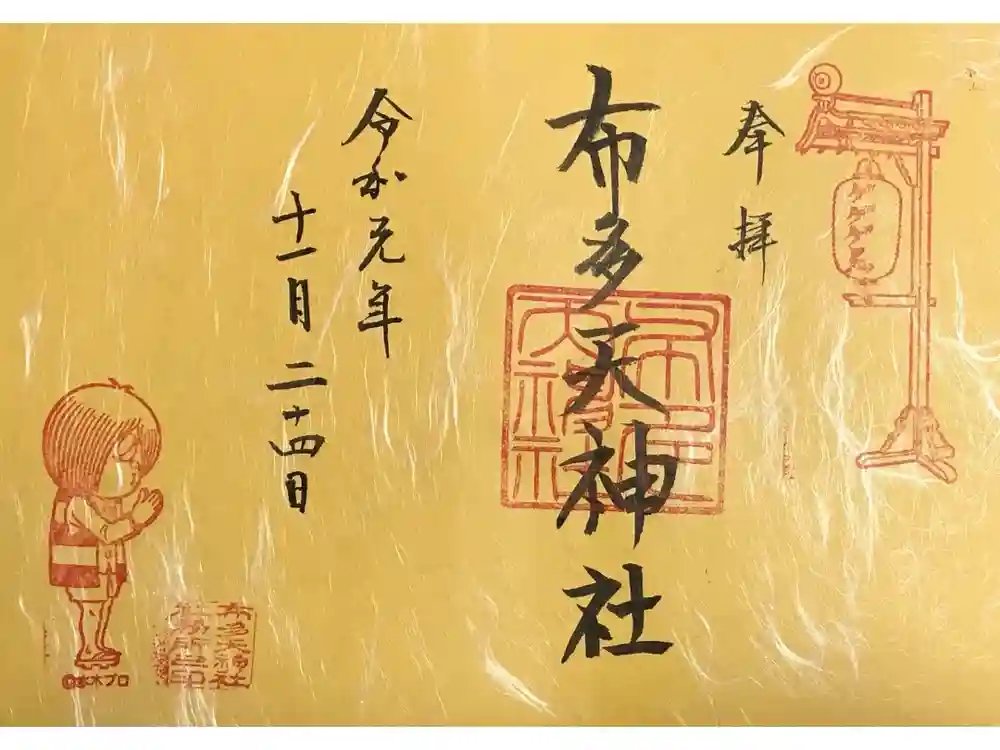 奉拝
布多天神社
令和元年
十一月二十四日
ゲゲゲ忌
布多天神社
社務所之印
©水木プロ